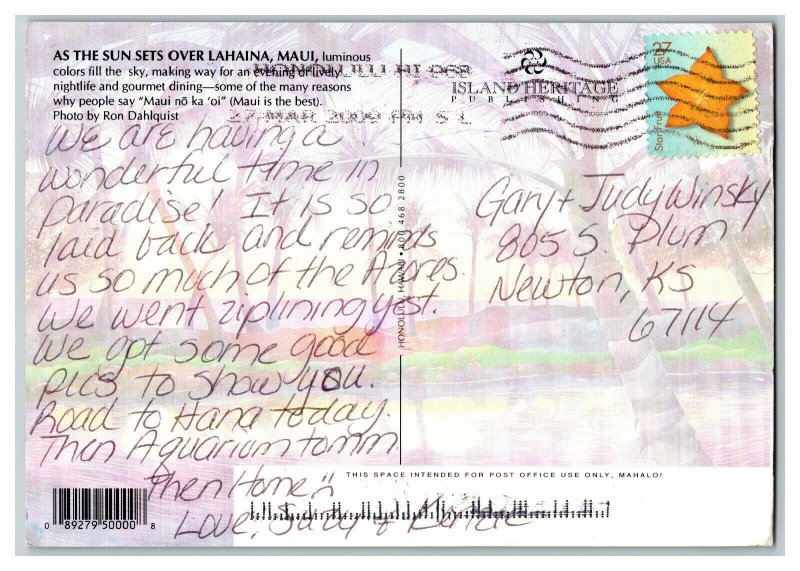 AS THE SUN SETS OVER LAHAINA, MAUI, luminous
colors fill the sky, making way for an evening of lively
nightlife and gourmet dining—some of the many reasons
why people say "Maui nō ka 'oi" (Maui is the best).
Photo by Ron Dahlquist
HONOLULU HI 968
27 MAR 2009 PM 5 L
ISLAND HERITAGE
PUBLISHING
27
USA
Star Fruit
We are having a
wonderful time in
Paradise! It is so
laid back and reminds
us so much of the Azores.
We went ziplining yest.
We got some good
pics to show you.
Road to Hana today.
Then Aquarium tomm
Then Home
Love, Judy +
Gary + Judy Winsky
805 S. Plum
Newton, KS
67114
HONOLULU, HAWAII • 800 468 2800
THIS SPACE INTENDED FOR POST OFFICE USE ONLY, MAHALO!
0 89279 50000 8